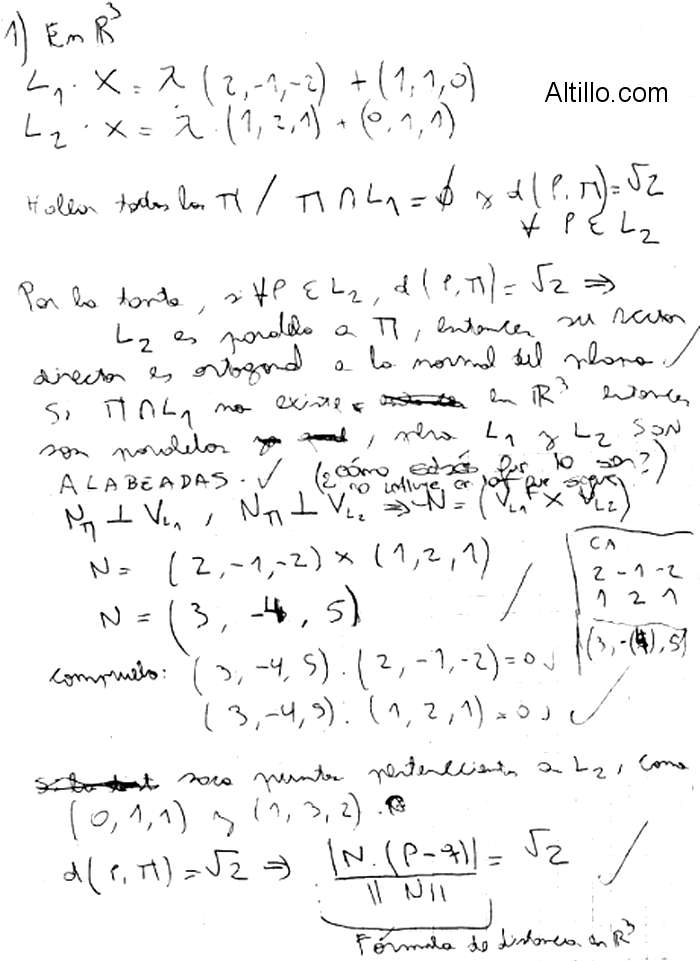 1) En R³
L₁ . X = λ (2,-1,-2) + (1,1,0)
Altillo.com
L₂ . X = λ . (1,2,1) + (0,1,1)
Hallar todos los Π / Π ∩ L₁ = ∅ y d(P,Π) = √2
∀ P ∈ L₂
Por lo tanto, si ∀P ∈ L₂, d(P,Π) = √2 ⇒
L₂ es paralelo a Π, entonces su vector
director es ortogonal a la normal del plano.
Si Π ∩ L₁ no existe en R³ entonces
son paralelos, pero L₁ y L₂ SON
ALABEADAS. ✓ (¿cómo que lo son?)
no influye en lo que sigue
N_Π ⊥ V_L₁ , N_Π ⊥ V_L₂ ⇒ N = (V_L₁ × V_L₂)
N = (2,-1,-2) × (1,2,1)
N = (3, -4, 5)
CA
2 -1 -2
1 2 1
(3,-(4),5)
compruebo: (3,-4,5) . (2,-1,-2) = 0 ✓
(3,-4,5) . (1,2,1) = 0 ✓
saco puntos pertenecientes a L₂, como
(0,1,1) y (1,3,2) .
d(P,Π) = √2 ⇒ |N . (P-q)| / ||N|| = √2
Fórmula de distancia en R³